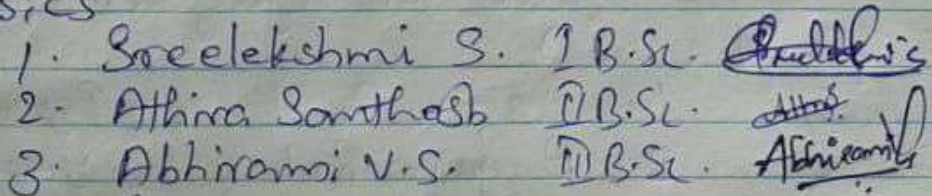 1. Sreelekshmi S. I B.Sc.
2. Athira Santhosh II B.Sc.
3. Abhirami V.S. III B.Sc. Abhirami